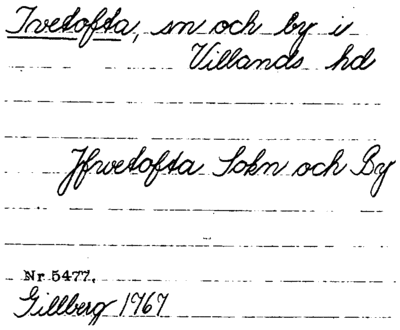 Ivetofta, sn och by i
Villands hd
Jfvetofta Sokn och By
Nr 5477.
Gillberg 1767